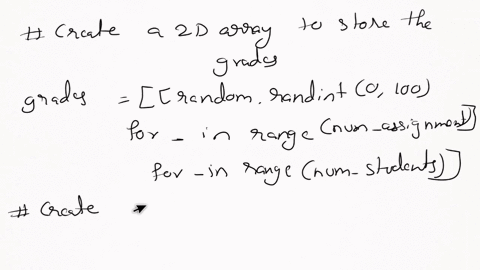 # Create a 2D array to store the
grades
grades = [[random.randint(0, 100)
for _ in range(num_assignment)]
for _ in range(num_students)]
# Create